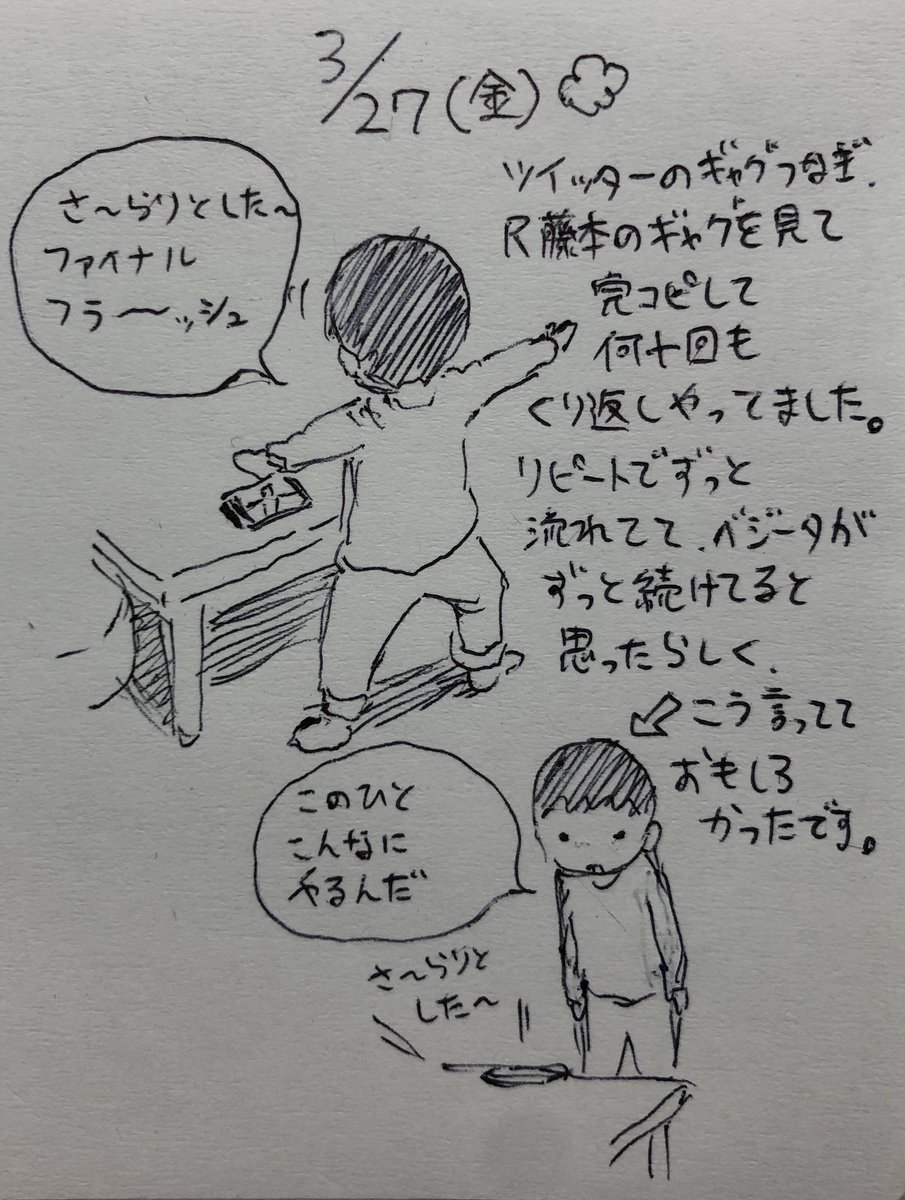 3/27(金)
さ〜らりとした〜
ファイナル
フラ〜ッシュ
ツイッターのギャグつなぎ、
R藤本のギャグを見て
完コピして
何十回も
くり返しやってました。
リピートでずっと
流れてて、ベジータが
ずっと続けてると
思ったらしく、
こう言ってて
おもしろ
かったです。
このひと
こんなに
やるんだ
さ〜らりと
した〜